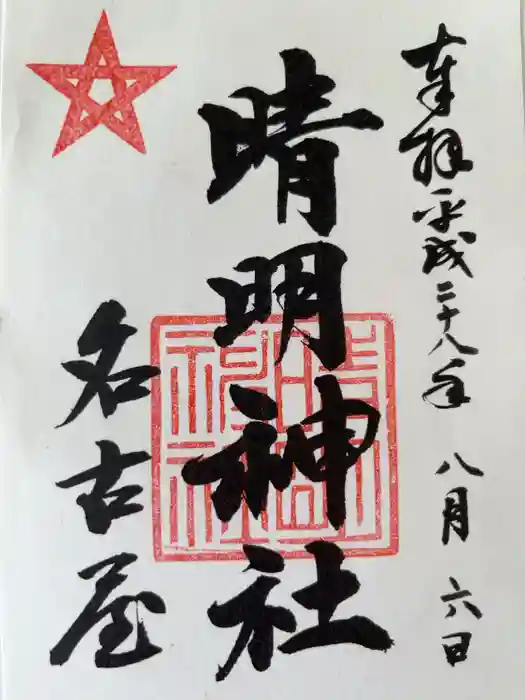 奉拝 平成二十八年 八月 六日
晴明神社
名古屋
晴明神社